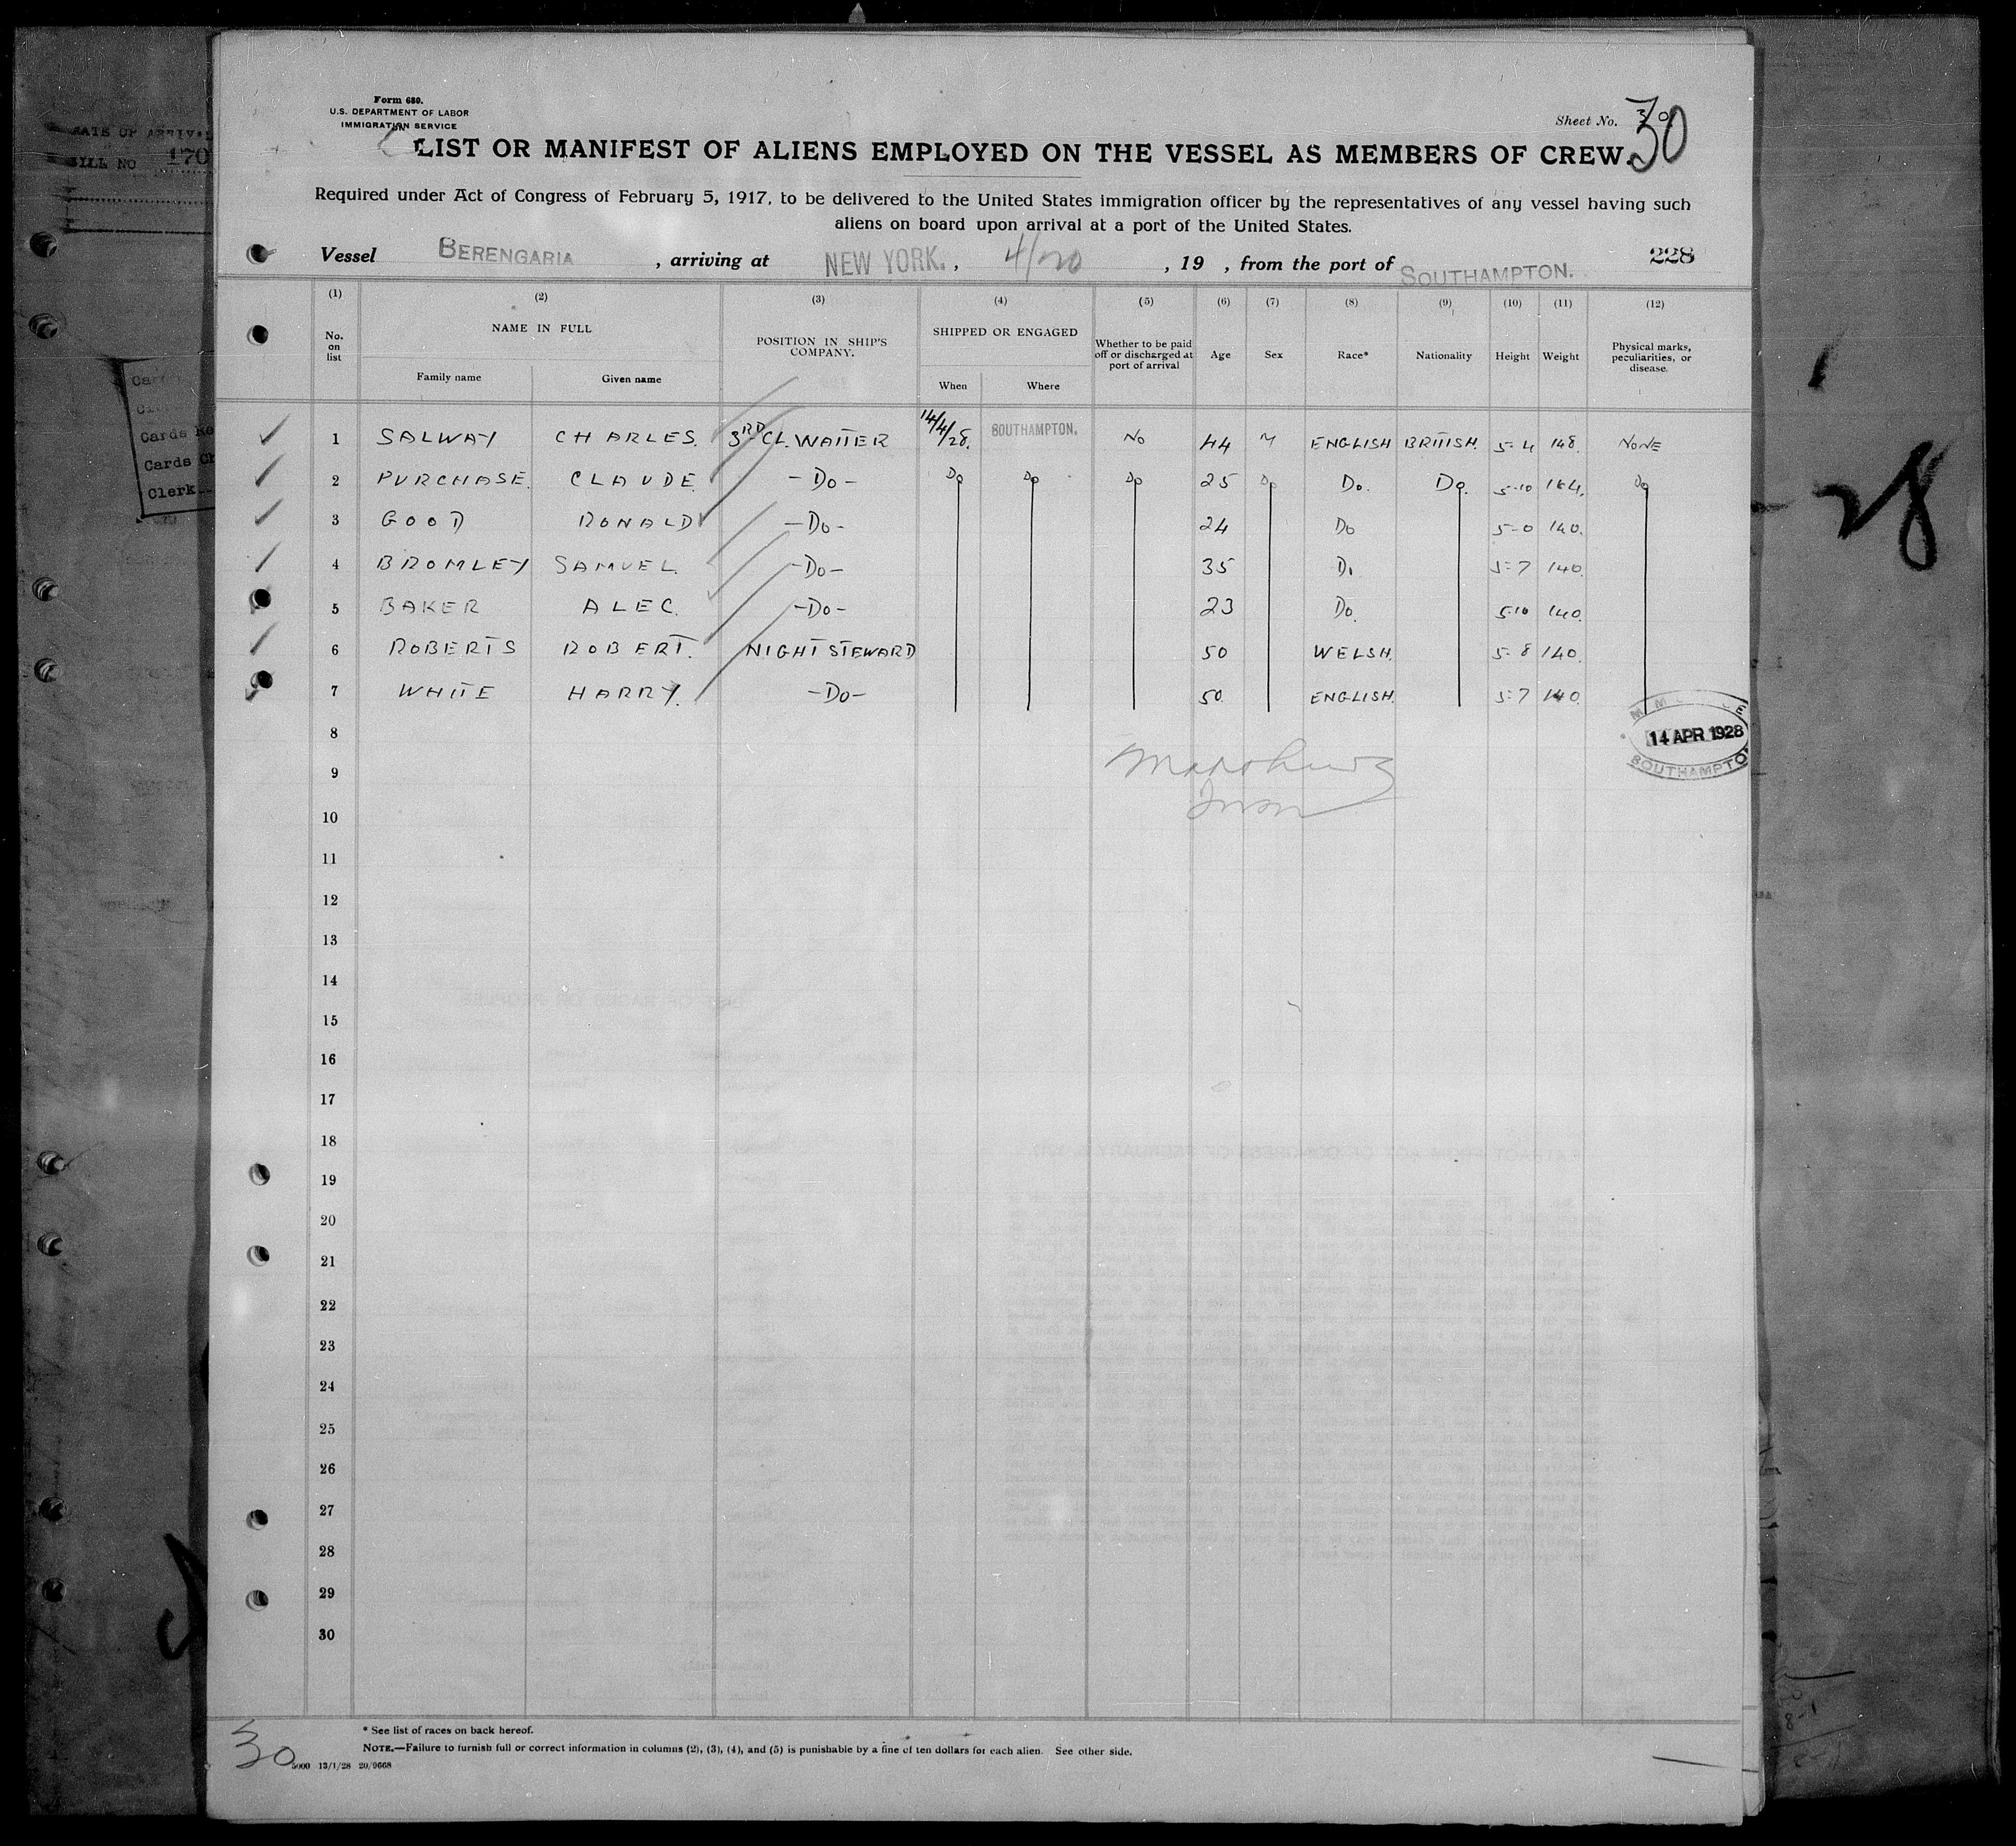 Form 680.
U.S. DEPARTMENT OF LABOR
IMMIGRATION SERVICE
Sheet No. 30
30
LIST OR MANIFEST OF ALIENS EMPLOYED ON THE VESSEL AS MEMBERS OF CREW.
Required under Act of Congress of February 5, 1917, to be delivered to the United States immigration officer by the representatives of any vessel having such
aliens on board upon arrival at a port of the United States.
Vessel BERENGARIA , arriving at NEW YORK. , 4/20 , 19 , from the port of SOUTHAMPTON. 228
(1) (2) (3) (4) (5) (6) (7) (8) (9) (10) (11) (12)
No. on list NAME IN FULL POSITION IN SHIP'S COMPANY. SHIPPED OR ENGAGED Whether to be paid off or discharged at port of arrival Age Sex Race* Nationality Height Weight Physical marks, peculiarities, or disease.
Family name Given name When Where
1 SALWAY CHARLES. 3RD CL. WAITER 14/4/28. SOUTHAMPTON. NO 44 M ENGLISH BRITISH. 5-4 148. NONE
2 PURCHASE. CLAUDE. -Do- Do Do Do 25 Do Do. Do. 5-10 164. Do
3 GOOD RONALD -Do- 24 Do 5-0 140.
4 BROMLEY SAMUEL. -Do- 35 Do 5-7 140.
5 BAKER ALEC. -Do- 23 Do. 5-10 140.
6 ROBERTS ROBERT. NIGHT STEWARD 50 WELSH. 5-8 140.
7 WHITE HARRY. -Do- 50. ENGLISH. 5-7 140.
8
14 APR 1928
SOUTHAMPTO
9
10
11
12
13
14
15
16
17
18
19
20
21
22
23
24
25
26
27
28
29
30
* See list of races on back hereof.
NOTE.—Failure to furnish full or correct information in columns (2), (3), (4), and (5) is punishable by a fine of ten dollars for each alien. See other side.
30
5000 13/1/28 20/9668
BILL NO 170
Cards
Cards
Clerk
28